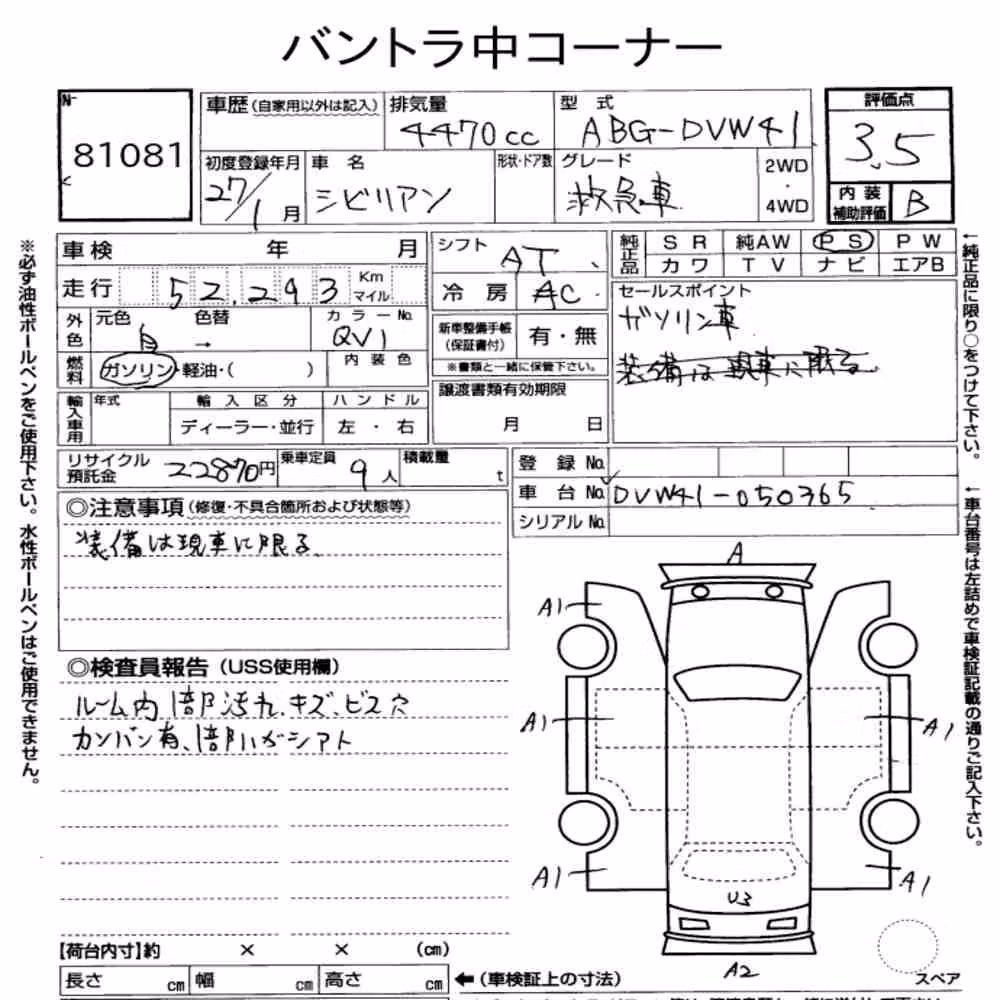 バントラ中コーナー
№
81081
車歴(自家用以外は記入)
排気量
4470cc
型 式
ABG-DVW41
評価点
3.5
初度登録年月
27/1月
車 名
シビリアン
形状・ドア数
グレード
救急車
2WD
・
4WD
内 装
補助評価
B
車検 年 月
シフト
AT
純正品
SR 純AW PS PW
カワ TV ナビ エアB
走行
52,293
Km
マイル
冷 房
AC
セールスポイント
ガソリン車
装備は現車に限る
外色
元色
白
→
色替
カラーNo.
QV1
新車整備手帳
(保証書付)
有・無
※書類と一緒に保管下さい。
燃料
ガソリン・軽油・( )
内 装 色
譲渡書類有効期限
月 日
輸入車用
年式
輸 入 区 分
ディーラー・並行
ハ ン ド ル
左 ・ 右
リサイクル
預託金
22870円
乗車定員
9人
積載量
t
登 録 No.
車 台 No.
DVW41-050365
シリアル No.
◎注意事項(修復・不具合箇所および状態等)
装備は現車に限る
◎検査員報告(USS使用欄)
ルーム内 汚れ、キズ、ビス穴
カンバン有、
A
A1
A1
A1
A1
A1
U3
A2
スペア
【荷台内寸】約 × × (cm)
長さ cm 幅 cm 高さ cm
←(車検証上の寸法)
※必ず油性ボールペンをご使用下さい。水性ボールペンはご使用できません。
←純正品に限り○をつけて下さい。
←車台番号は左詰めで車検証記載の通りご記入下さい。